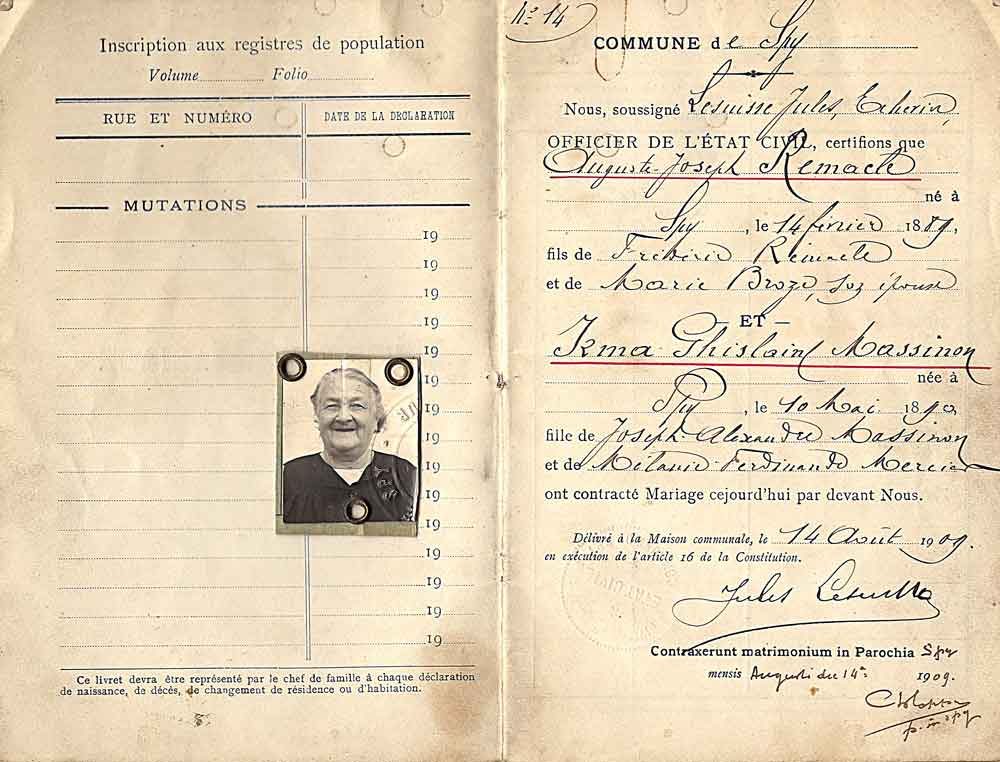 Inscription aux registres de population
Volume Folio
RUE ET NUMÉRO DATE DE LA DÉCLARATION
MUTATIONS
19
19
19
19
19
19
19
19
19
19
19
19
19
19
19
Ce livret devra être représenté par le chef de famille à chaque déclaration
de naissance, de décès, de changement de résidence ou d'habitation.
No 14
COMMUNE de Spy
Nous, soussigné Lesuisse Jules, Echevin,
OFFICIER DE L'ÉTAT CIVIL, certifions que
Auguste-Joseph Remacle
né à
Spy, le 14 février 1889,
fils de Frédéric Remacle
et de Marie Broze, son épouse
— ET —
Irma Ghislaine Massinon
née à
Spy, le 10 Mai 1890
fille de Joseph-Alexandre Massinon
et de Mélanie-Ferdinande Mercier
ont contracté Mariage cejourd'hui par devant Nous.
Délivré à la Maison communale, le 14 Août 1909.
en exécution de l'article 16 de la Constitution.
Jules Lesuisse
Contraxerunt matrimonium in Parochia Spy
mensis Augusti die 14a 1909.
p. in Spy